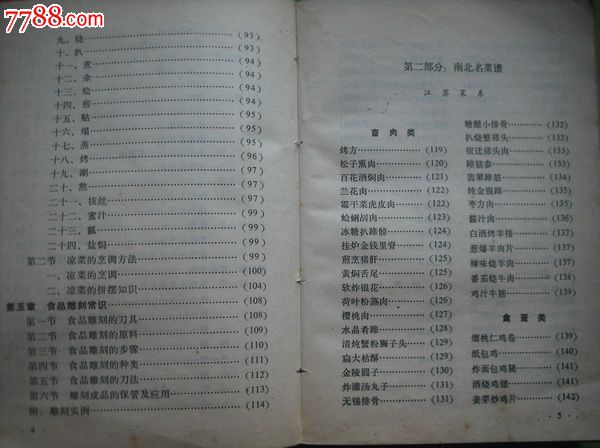 7788.com
中国收藏热线
九、烧 (93)
十、扒 (93)
十一、煮 (94)
十二、汆 (94)
十三、烩 (94)
十四、煎 (94)
十五、贴 (95)
十六、塌 (95)
十七、蒸 (95)
十八、烤 (96)
十九、涮 (97)
二十、熬 (97)
二十一、拔丝 (97)
二十二、蜜汁 (99)
二十三、甑 (99)
二十四、盐焗 (99)
第二节 凉菜的烹调方法 (99)
一、凉菜的烹调 (100)
二、凉菜的拼摆知识 (104)
第五章 食品雕刻常识 (108)
第一节 食品雕刻的刀具 (108)
第二节 食品雕刻的原料 (109)
第三节 食品雕刻的步骤 (110)
第四节 食品雕刻的种类 (111)
第五节 食品雕刻的刀法 (112)
第六节 雕刻成品的保管及应用 (113)
附：雕刻实例 (114)
4
第二部分：南北名菜谱
江苏菜系
畜肉类
烤方 (119)
松子熏肉 (120)
百花酒焖肉 (121)
兰花肉 (121)
霉干菜虎皮肉 (122)
蛤蜊𤆵肉 (122)
冰糖扒蹄髈 (124)
挂炉金钱里脊 (124)
煎烹猪肝 (124)
黄焖舌尾 (125)
软炸眼花 (126)
荷叶粉蒸肉 (126)
樱桃肉 (127)
水晶肴蹄 (128)
清炖蟹粉狮子头 (129)
扁大枯酥 (129)
金陵圆子 (130)
炸灌汤丸子 (131)
无锡排骨 (131)
糖醋小排骨 (132)
扒烧整猪头 (132)
宿迁猪头肉 (133)
蹄筋参 (133)
翡翠蹄筋 (134)
炖金银蹄 (135)
枣方肉 (135)
酱汁肉 (136)
白酒烤羊排 (136)
葱爆羊肉片 (137)
辣味烧羊肉 (137)
番茄烧牛肉 (138)
鸡汁牛筋 (139)
禽蛋类
熘桃仁鸡卷 (139)
纸包鸡 (140)
炸面包鸡腿 (140)
酒烧鸡翅 (141)
姜芽炒鸡片 (142)
5